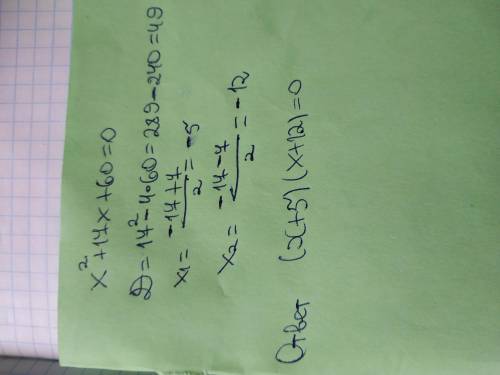 x²+17x+60=0
D=17²-4•60=289-240=49
x₁= (-17+7)/2 = -5
x₂= (-17-7)/2 = -12
Ответ (x+5)(x+12)=0